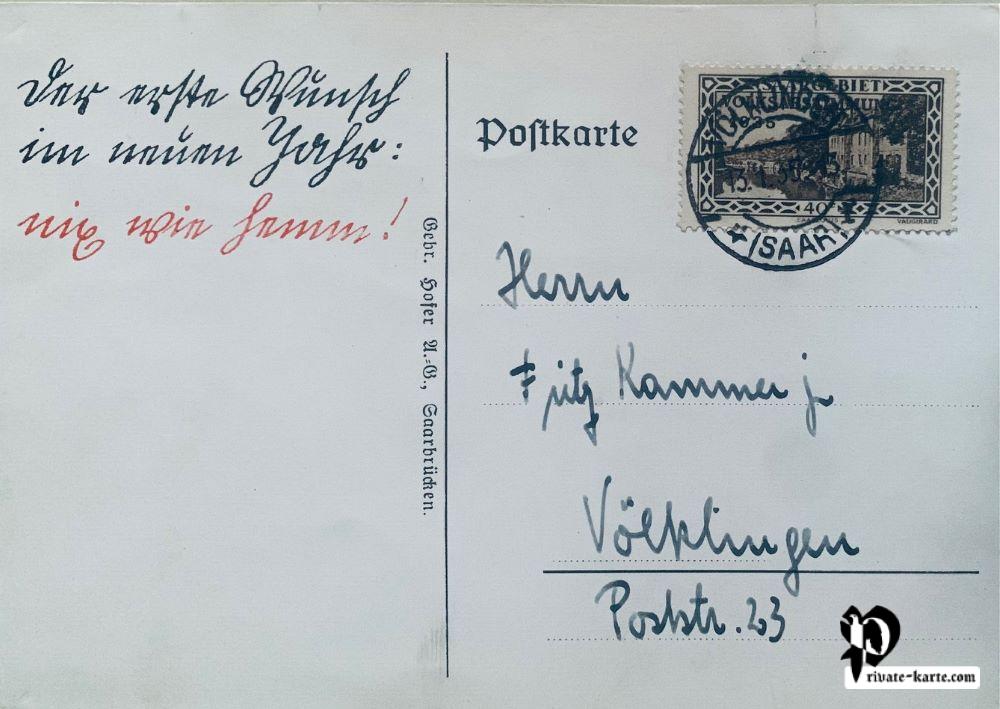 Der erste Wunsch
im neuen Jahr:
nix wie hemm!
Gebr. Hofer A.=G., Saarbrücken.
Postkarte
GEBIET
VÖLKLINGEN
(SAAR)
40
VAUGIRARD
Herrn
Fritz Kammer jr
Völklingen
Poststr. 23
Private-karte.com